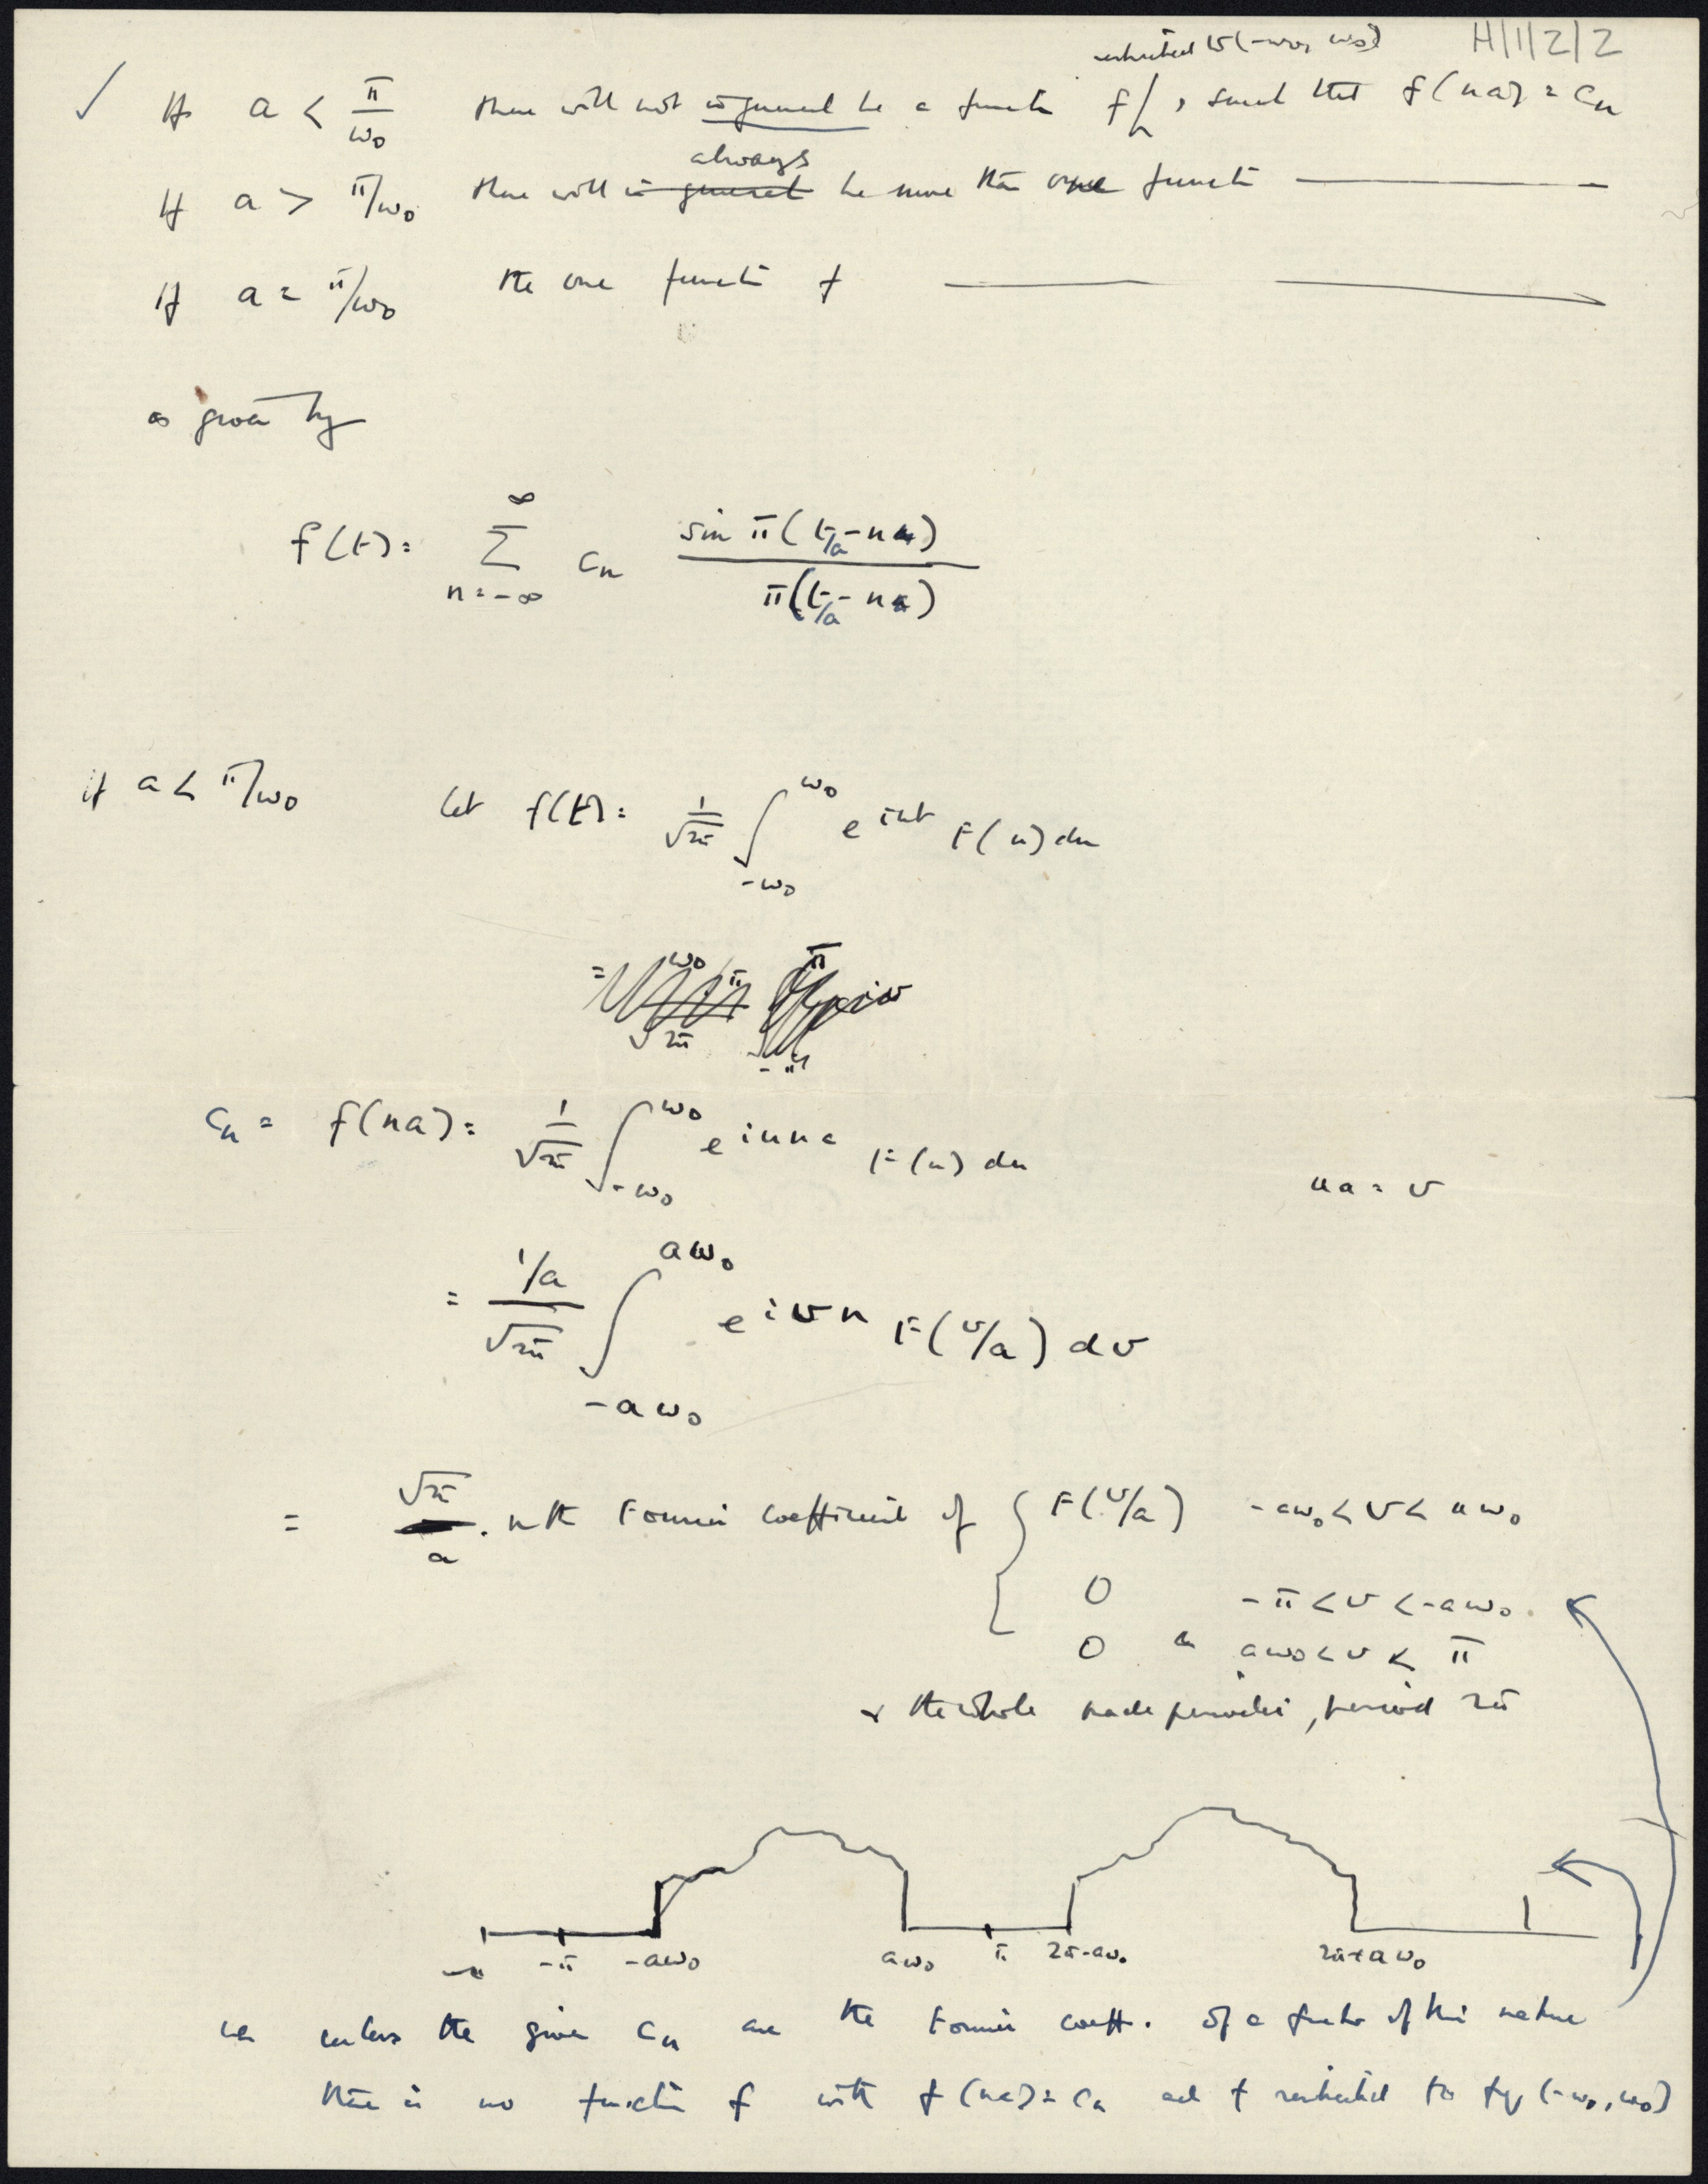 H/1/2/2
restricted to (-ω₀, ω₀)
✓ If a < π/ω₀ there will not in general be a function f, such that f(na) = cₙ
always
If a > π/ω₀ there will in general be more than one function ————
If a = π/ω₀ the one function f ——— ———
is given by
f(t) = ∑_{n=-∞}^{∞} cₙ sin π(t/a - n) / π(t/a - n)
if a < π/ω₀ let f(t) = 1/√2π ∫_{-ω₀}^{ω₀} e^{iut} F(u) du
cₙ = f(na) = 1/√2π ∫_{-ω₀}^{ω₀} e^{iuna} F(u) du ua = v
= (1/a)/√2π ∫_{-aω₀}^{aω₀} e^{ivn} F(v/a) dv
= √2π/a . nth Fourier coefficient of { F(v/a) -aω₀ < v < aω₀
0 -π < v < -aω₀
0 aω₀ < v < π
& the whole made periodic, period 2π
-π -aω₀ aω₀ π 2π-aω₀ 2π+aω₀
ie unless the given cₙ are the Fourier coeff. of a function of this nature
there is no function f with f(na) = cₙ and f restricted to fq (-ω₀, ω₀)